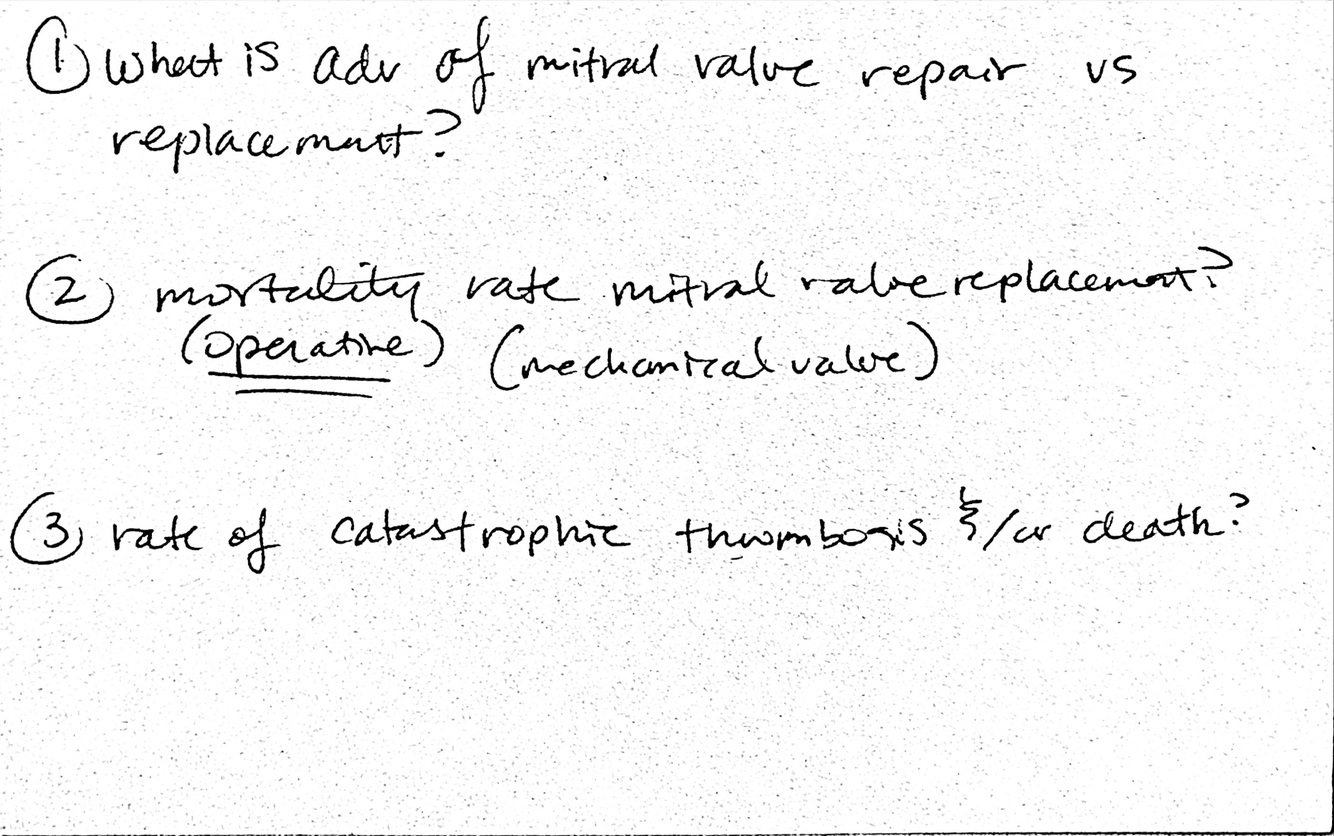 ① What is adv of mitral valve repair vs
replacement?
② mortality rate mitral valve replacement?
(operative) (mechanical valve)
③ rate of catastrophic thrombosis &/or death?